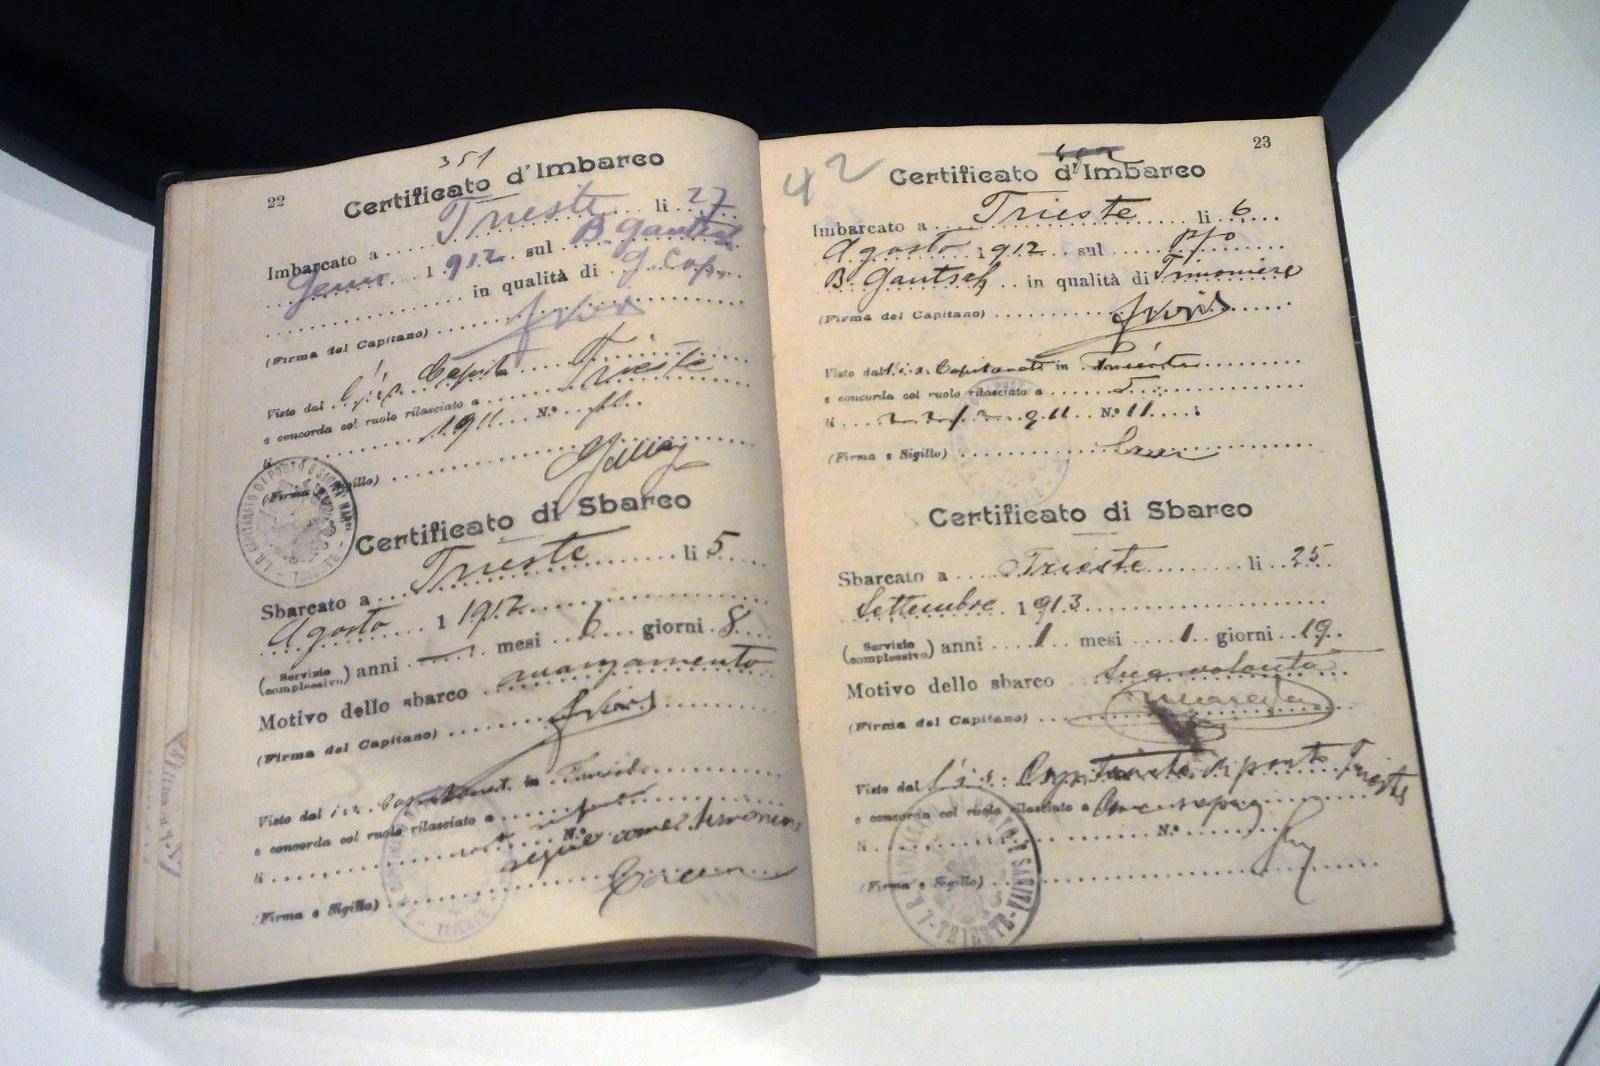 22
351
Certificato d'Imbarco
Imbarcato a Trieste li 27
Genn 1912 sul B. Gautsch
in qualità di g. Cap.
(Firma del Capitano)
Visto dal Trieste
e concorda col ruolo rilasciato a Trieste
li 1911 N.º 11
(Firma e Sigillo)
Certificato di Sbarco
Sbarcato a Trieste li 5
Agosto 1 1912
(Servizio complessivo) anni — mesi 6 giorni 8
Motivo dello sbarco avanzamento
(Firma del Capitano)
Visto dal i. r. in Trieste
e concorda col ruolo rilasciato a
li N.º segue come timoniere
(Firma e Sigillo)
TRIESTE
23
42
Certificato d'Imbarco
Imbarcato a Trieste li 6
Agosto 1912 sul pfo
B Gautsch in qualità di Timoniere
(Firma del Capitano)
Visto dal i. r. Capitanato in Trieste
e concorda col ruolo rilasciato a T.
li 911 N.º 11
(Firma e Sigillo)
Certificato di Sbarco
Sbarcato a Trieste li 25
Settembre 1913
(Servizio complessivo) anni 1 mesi 1 giorni 19
Motivo dello sbarco sua volontà
(Firma del Capitano)
Visto dal i. r. Capitanato di porto Trieste
e concorda col ruolo rilasciato a
li N.º
(Firma e Sigillo)
TRIESTE